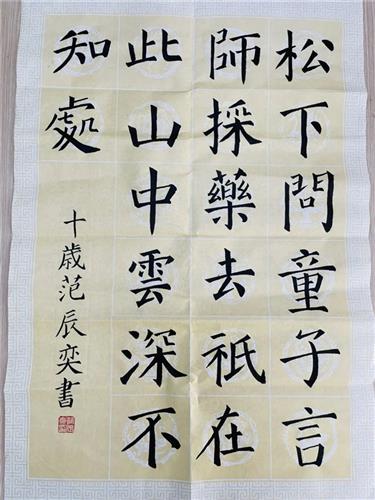 松下問童子言
師採藥去祇在
此山中雲深不
知處
十歲范辰奕書